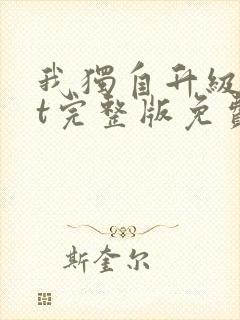 我獨自升級
t完整版免費
斯奎尔